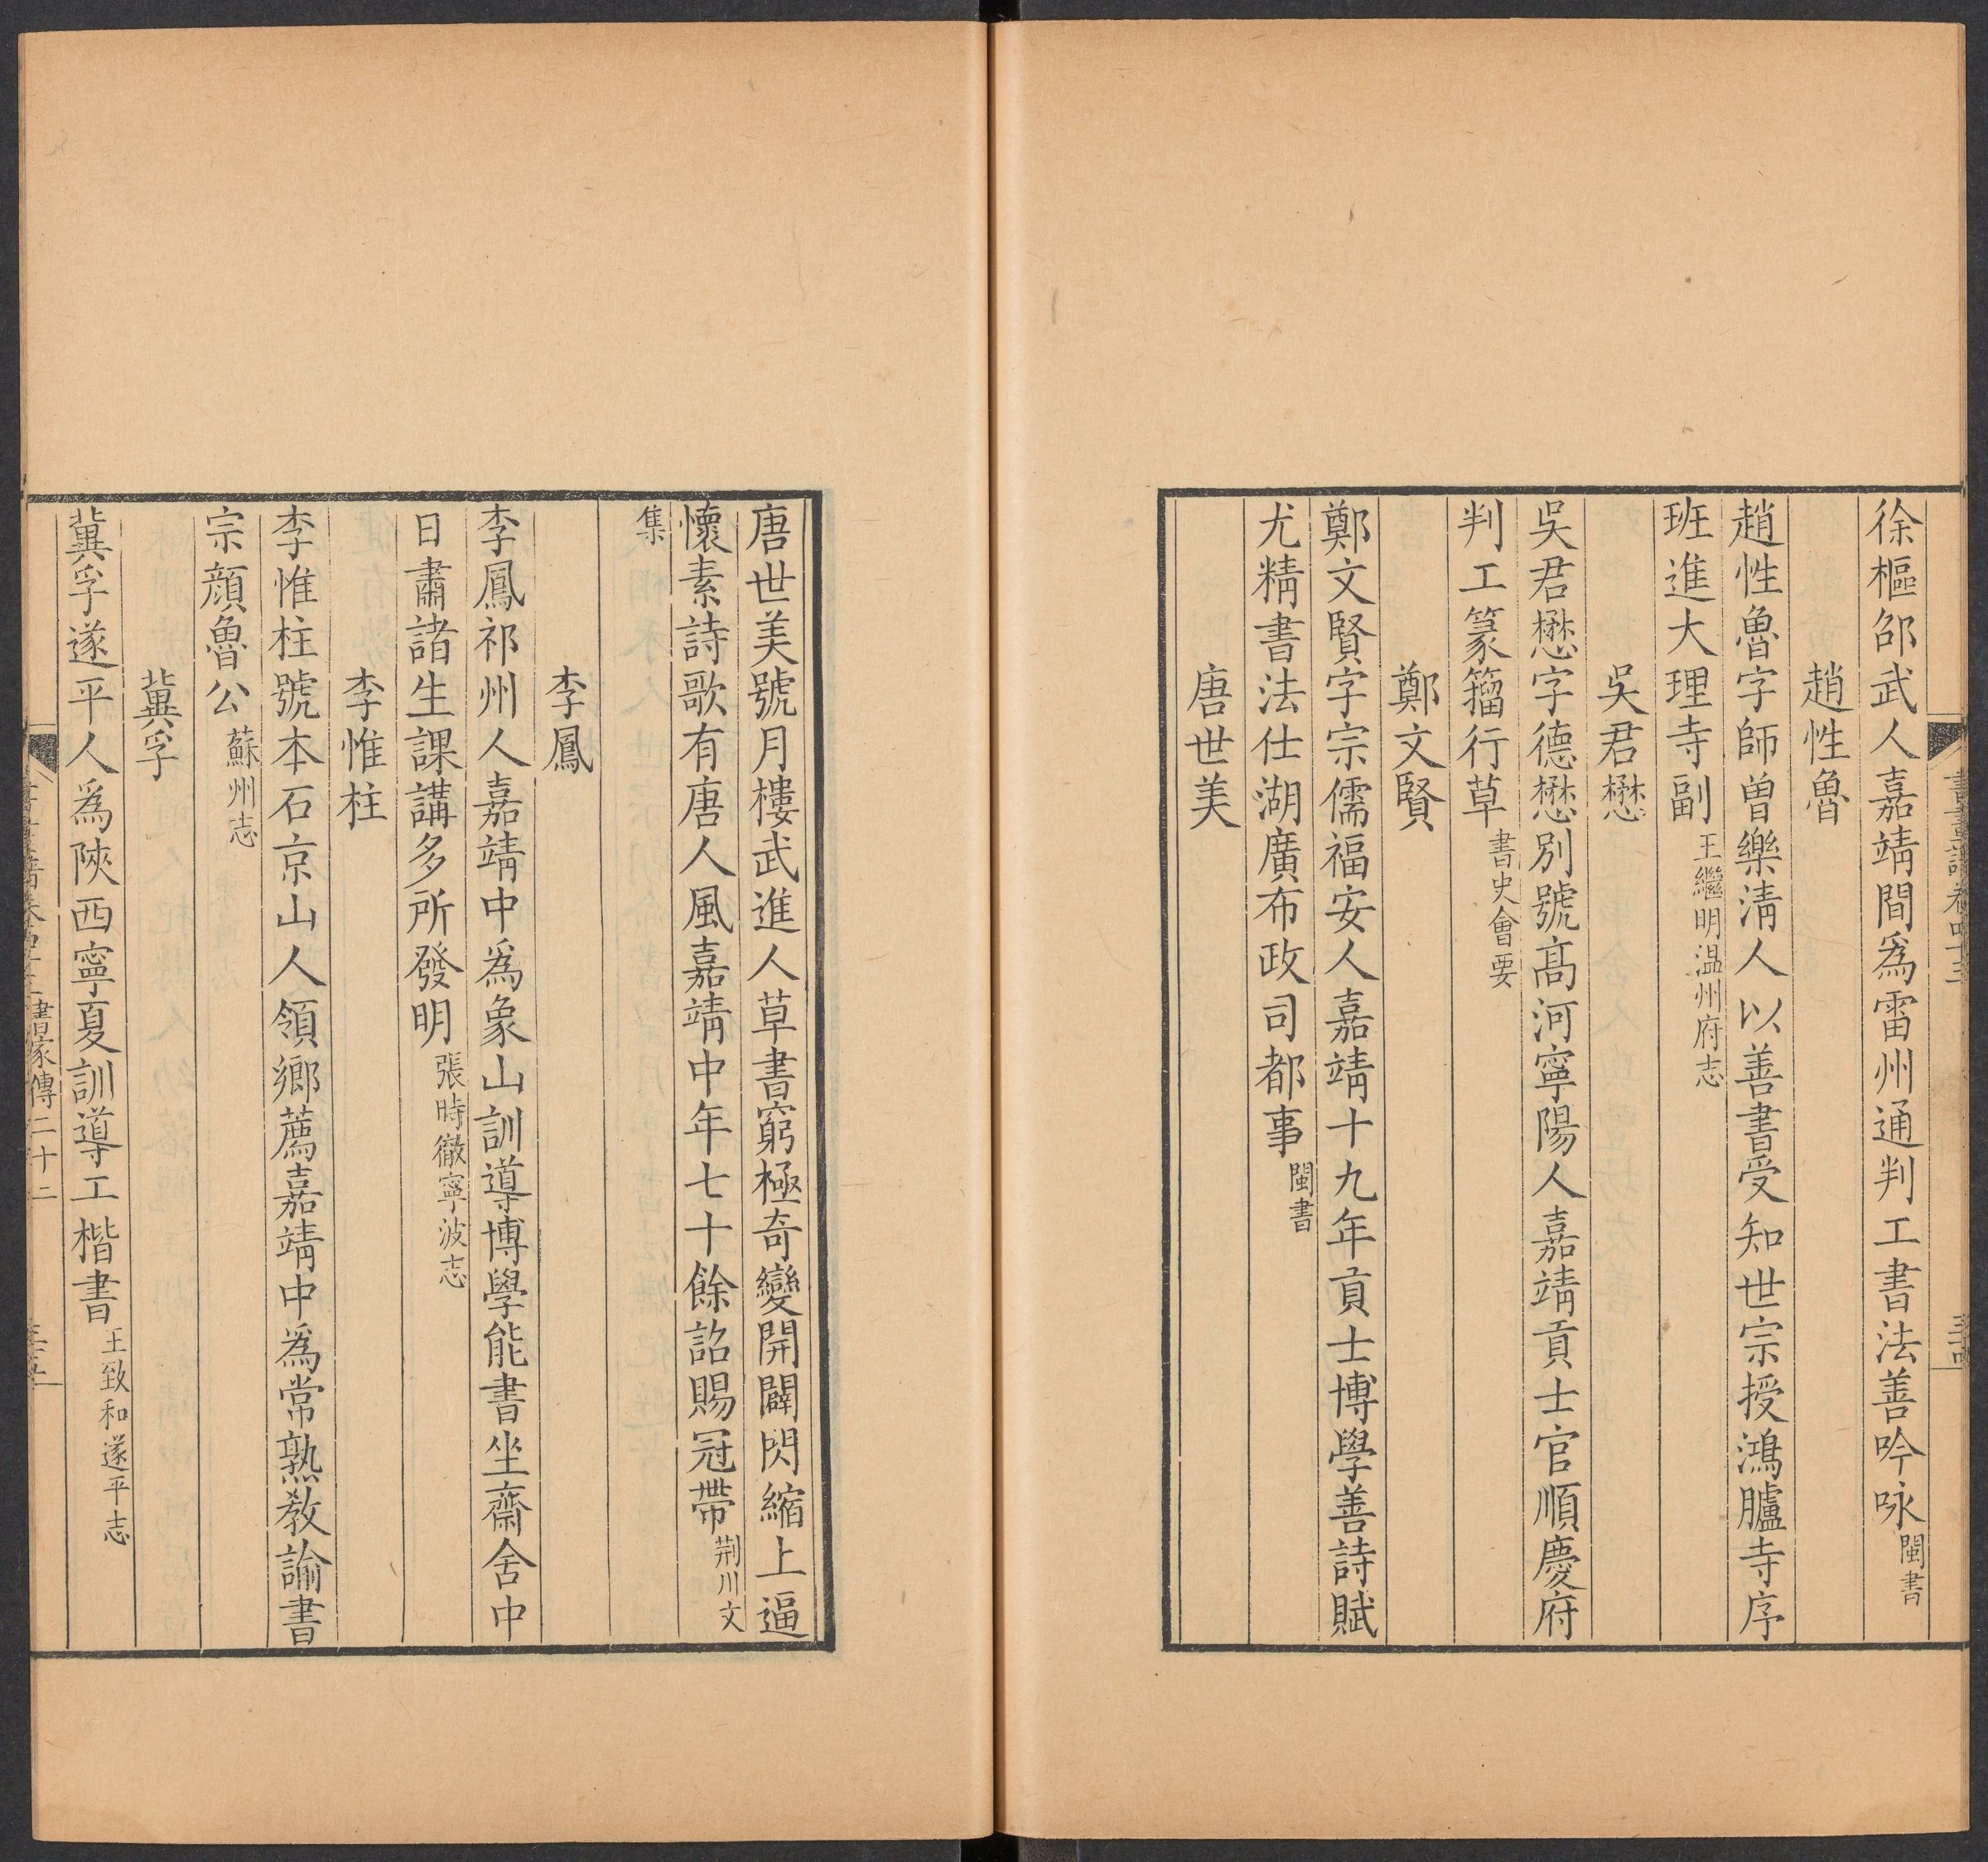 徐樞邵武人嘉靖間爲雷州通判工書法善吟咏閩書
趙性魯
趙性魯字師曾樂淸人以善書受知世宗授鴻臚寺序
班進大理寺副王繼明温州府志
吳君懋
吳君懋字德懋別號高河寧陽人嘉靖貢士官順慶府
判工篆籀行草書史會要
鄭文賢
鄭文賢字宗儒福安人嘉靖十九年貢士博學善詩賦
尤精書法仕湖廣布政司都事閩書
唐世美
唐世美號月樓武進人草書窮極奇變開闢閃縮上逼
懷素詩歌有唐人風嘉靖中年七十餘詔賜冠帶荆川文
集
李鳳
李鳳祁州人嘉靖中爲象山訓導博學能書坐齋舍中
日肅諸生課講多所發明張時徹寧波志
李惟柱
李惟柱號本石京山人領鄉薦嘉靖中爲常熟敎諭書
宗顏魯公蘇州志
冀孚
冀孚遂平人爲陝西寧夏訓導工楷書王致和遂平志
書家傳二十二